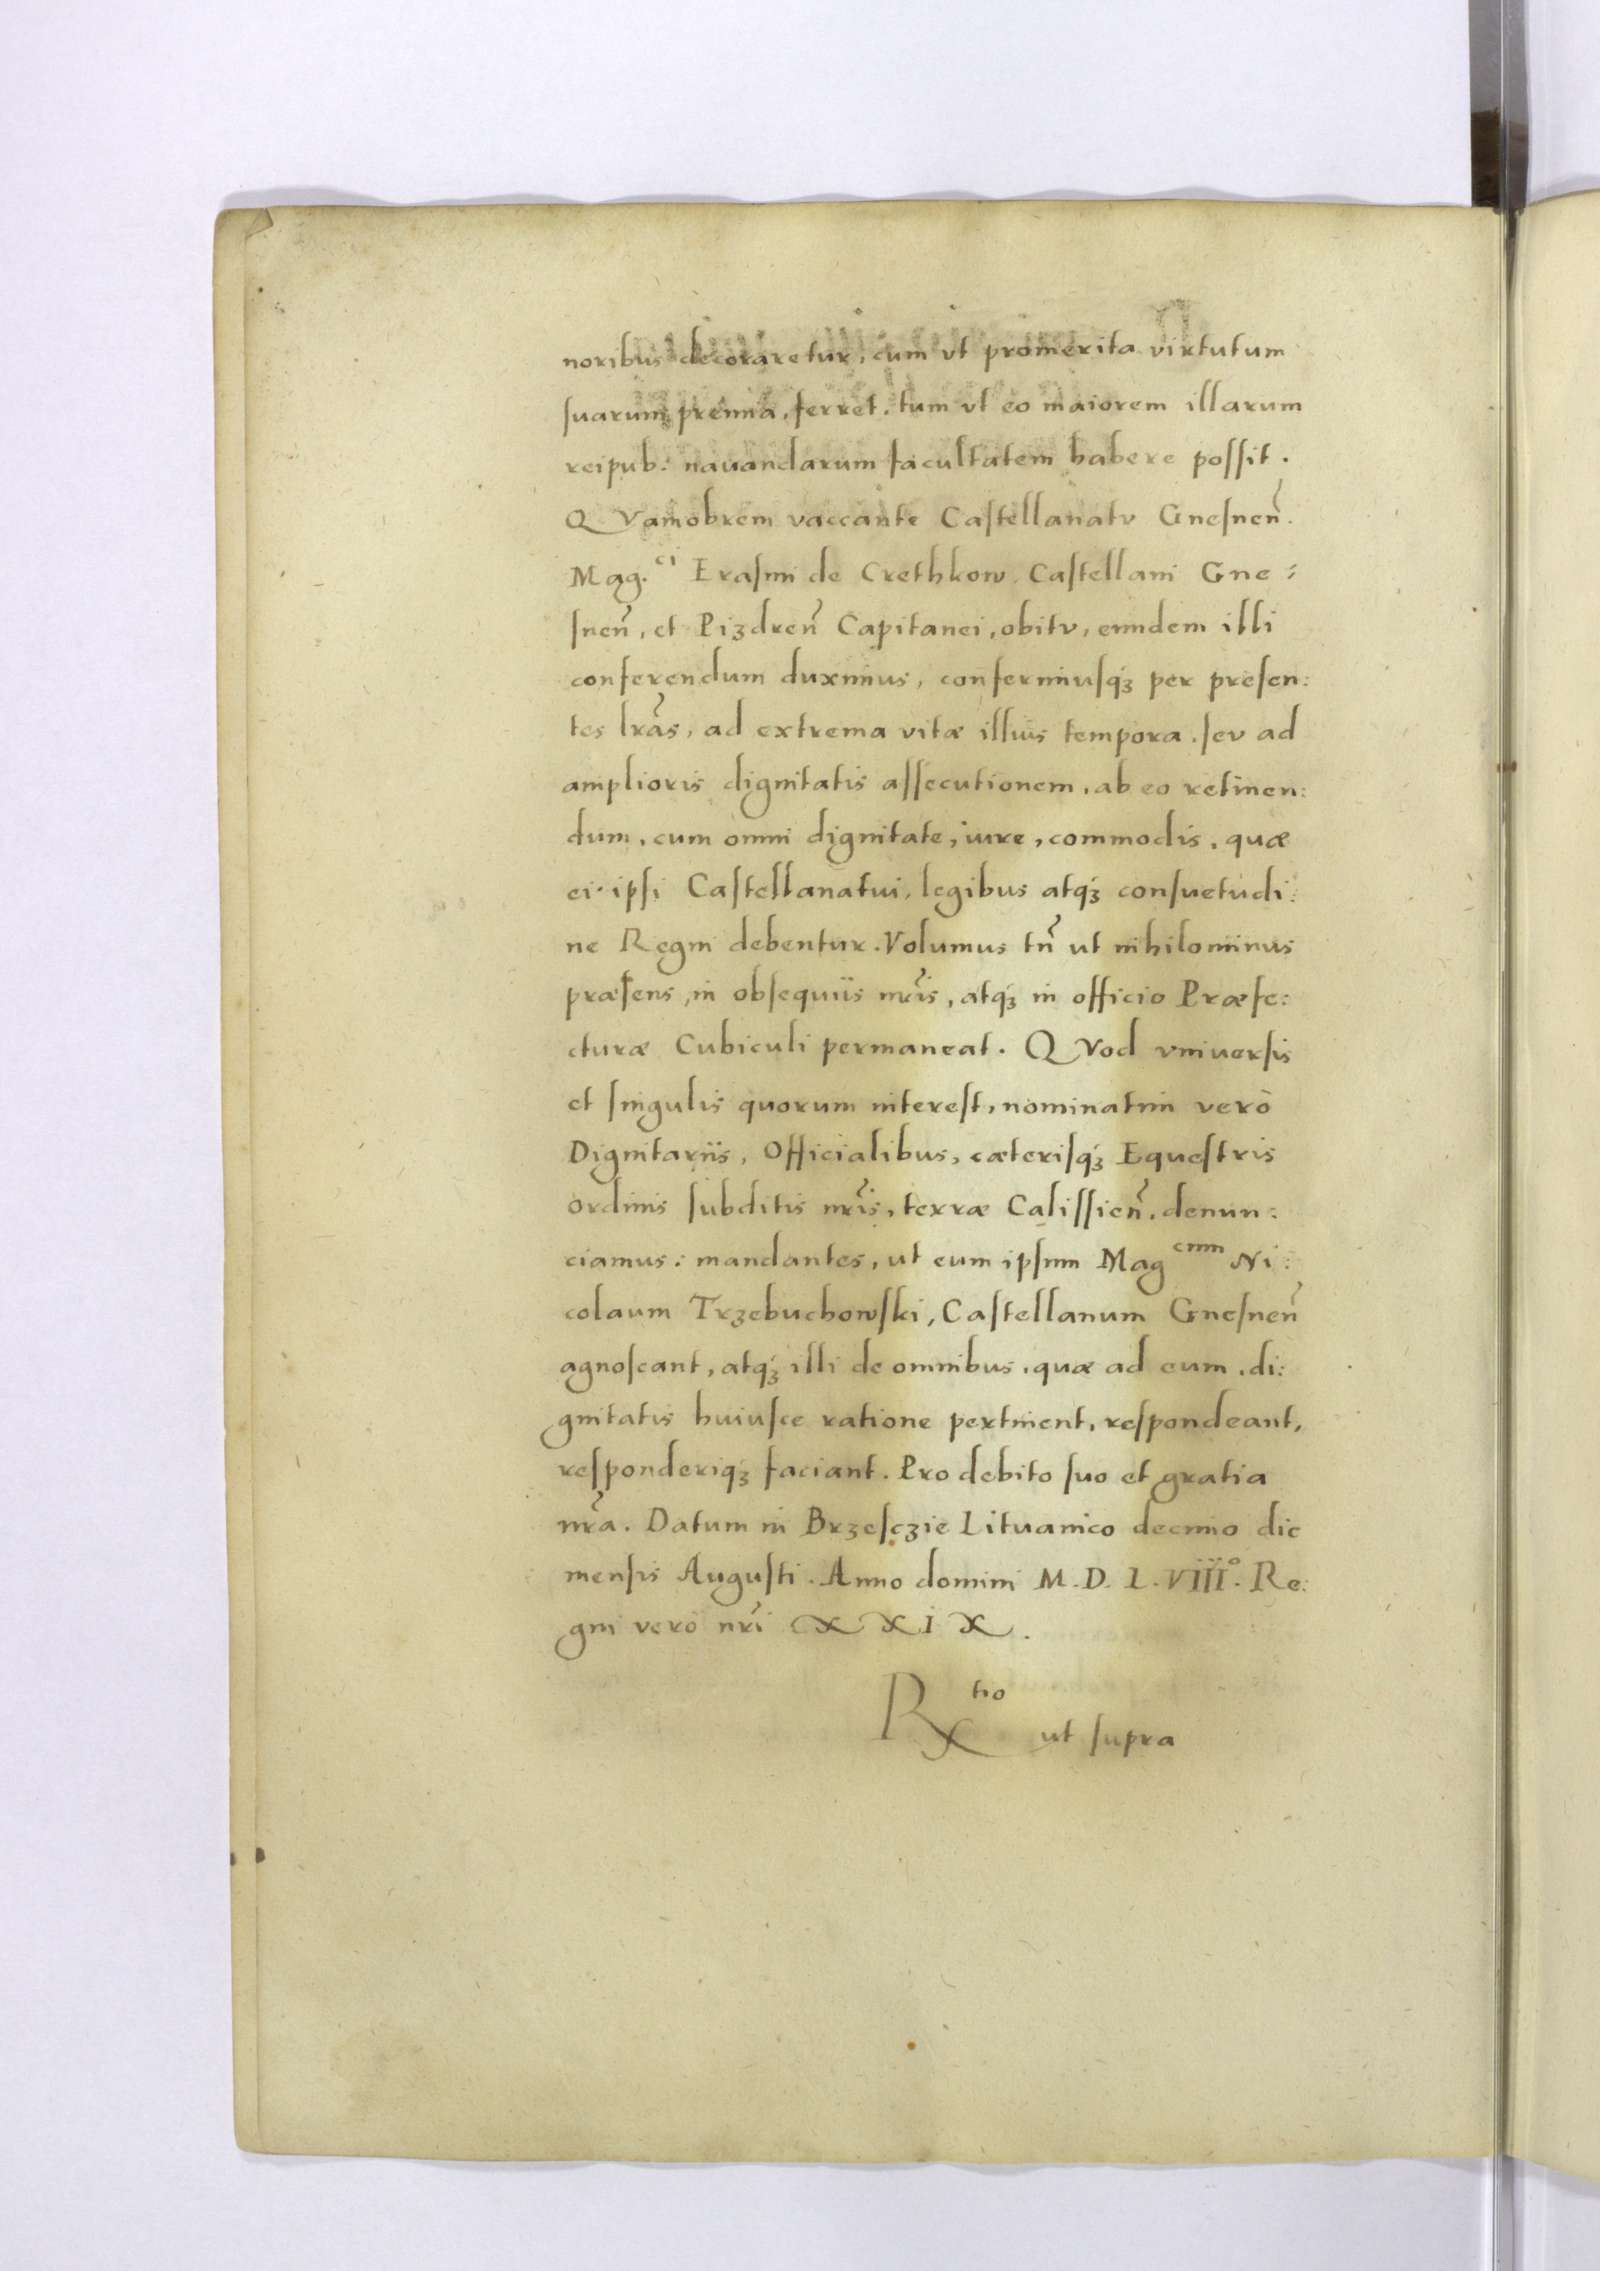 noribus decoraretur, cum vt promerita virtutum
ſuarum premia, ferret. tum vt eo maiorem illarum
reipub: nauandarum facultatem habere poſſit.
QVamobrem vaccante Caſtellanatv Gneſneñ.
Mag.ci Eraſmi de Crethkow. Caſtellani Gne:
ſneñ, et Pizdreñ Capitanei, obitv, eundem illi
conferendum duximus, conferimuſqȝ per preſen:
tes lr̃as, ad extrema vitæ illius tempora. ſev ad
amplioris dignitatis aſſecutionem, ab eo retinen:
dum, cum omni dignitate, iure, commodis, quæ
ei ipſi Caſtellanatui, legibus atqȝ conſuetudi:
ne Regni debentur. Volumus tñ ut nihilominus
præſens, in obſequiis nr̃is, atqȝ in officio Præfe:
cturæ Cubiculi permaneat. QVod vniuerſis
et ſingulis quorum intereſt, nominatim verò
Dignitariis, Officialibus, cæteriſqȝ Equeſtris
ordinis ſubditis nr̃is, terræ Caliſſieñ. denun:
ciamus: mandantes, ut eum ipſum Magcum Ni:
colaum Trzebuchowſki, Caſtellanum Gneſneñ
agnoſcant, atqȝ illi de omnibus, quæ ad eum, di:
gnitatis huiuſce ratione pertinent, reſpondeant,
reſponderiqȝ faciant. Pro debito ſuo et gratia
nr̃a. Datum in Brzeſczie Lituanico decimo die
menſis Auguſti. Anno domini M.D.L.VIIIº. Re:
gni verò nr̃i XXIX.
Rtio
ut ſupra